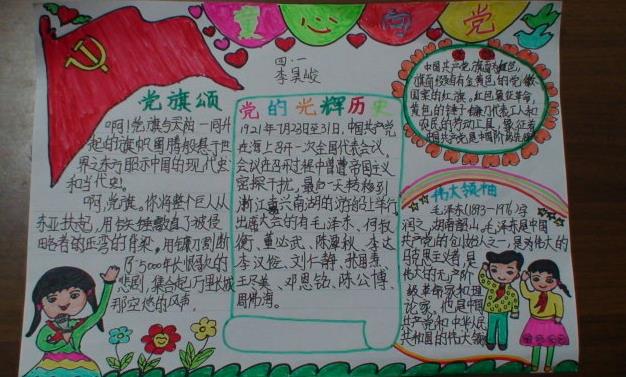 童心向党
四·一
李昊峻
党旗颂
啊!党旗与天地一同升
起的旗帜图腾般悬于世
界之东方昭示中国的现代史
和当代史。
啊,党旗,你将整个巨人从
东亚扶起,用铁锤敲直了被侵
略者的压弯的脊梁。用镰刀割断
了5000年长恨歌的
悲剧,集合起万里长城
那空地的风声
党的光辉历史
1921年7月23日至31日,中国共产党
在海上召开一次全国代表会议,
会议在召开过程中曾遭帝国主义
密探干扰,最后一天转移到
浙江嘉兴南湖的游船上举行
出席大会的有毛泽东、何叔
衡、董必武、陈潭秋、李达
李汉俊、刘仁静、张国焘、
王尽美、邓恩铭、陈公博、
周佛海。
中国共产党旗面为红色,
旗面缀有金黄色的党徽
图案的红旗。红色象征革命,
黄色的锤子镰刀代表工人和
农民的劳动工具,象征着
中国共产党是中国
伟大领袖
毛泽东(1893-1976)字
润之,湖南韶山,毛泽东是中国
共产党的创始人之一,是为伟大的
马克思主义者,是
伟大的无产阶
级革命家和理
论家,他是中国
共产党和中华人民
共和国的伟大领